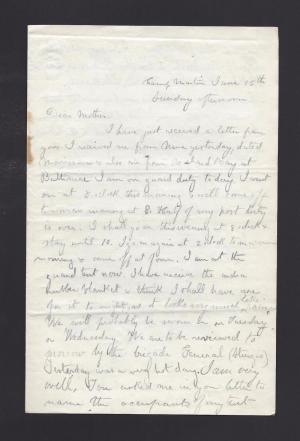 Camp Martin June 15th
Sunday afternoon
Dear Mother
I have just received a letter from
you I received one from Nona yesterday, dated
also one from
Baltimore I am on guard duty to day. I went
on at 8 o'clock this morning & will come off
tomorrow morning at 8. Half of my post duty
is over. I shall go on this evening at 8 o'clock &
stay until 10. I go on again at 2 o'clock tomorrow
morning & come off at four. I am at the
guard tent now. I have received the india
rubber blanket & think I shall have use
for it to night, as it looks very much like rain.
We will probably be sworn in on Tuesday
or Wednesday. We are to be reviewed to
by the brigade General
Yesterday was a very hot day. I am very
well. You asked me in your letter to
name the occupants of my tent